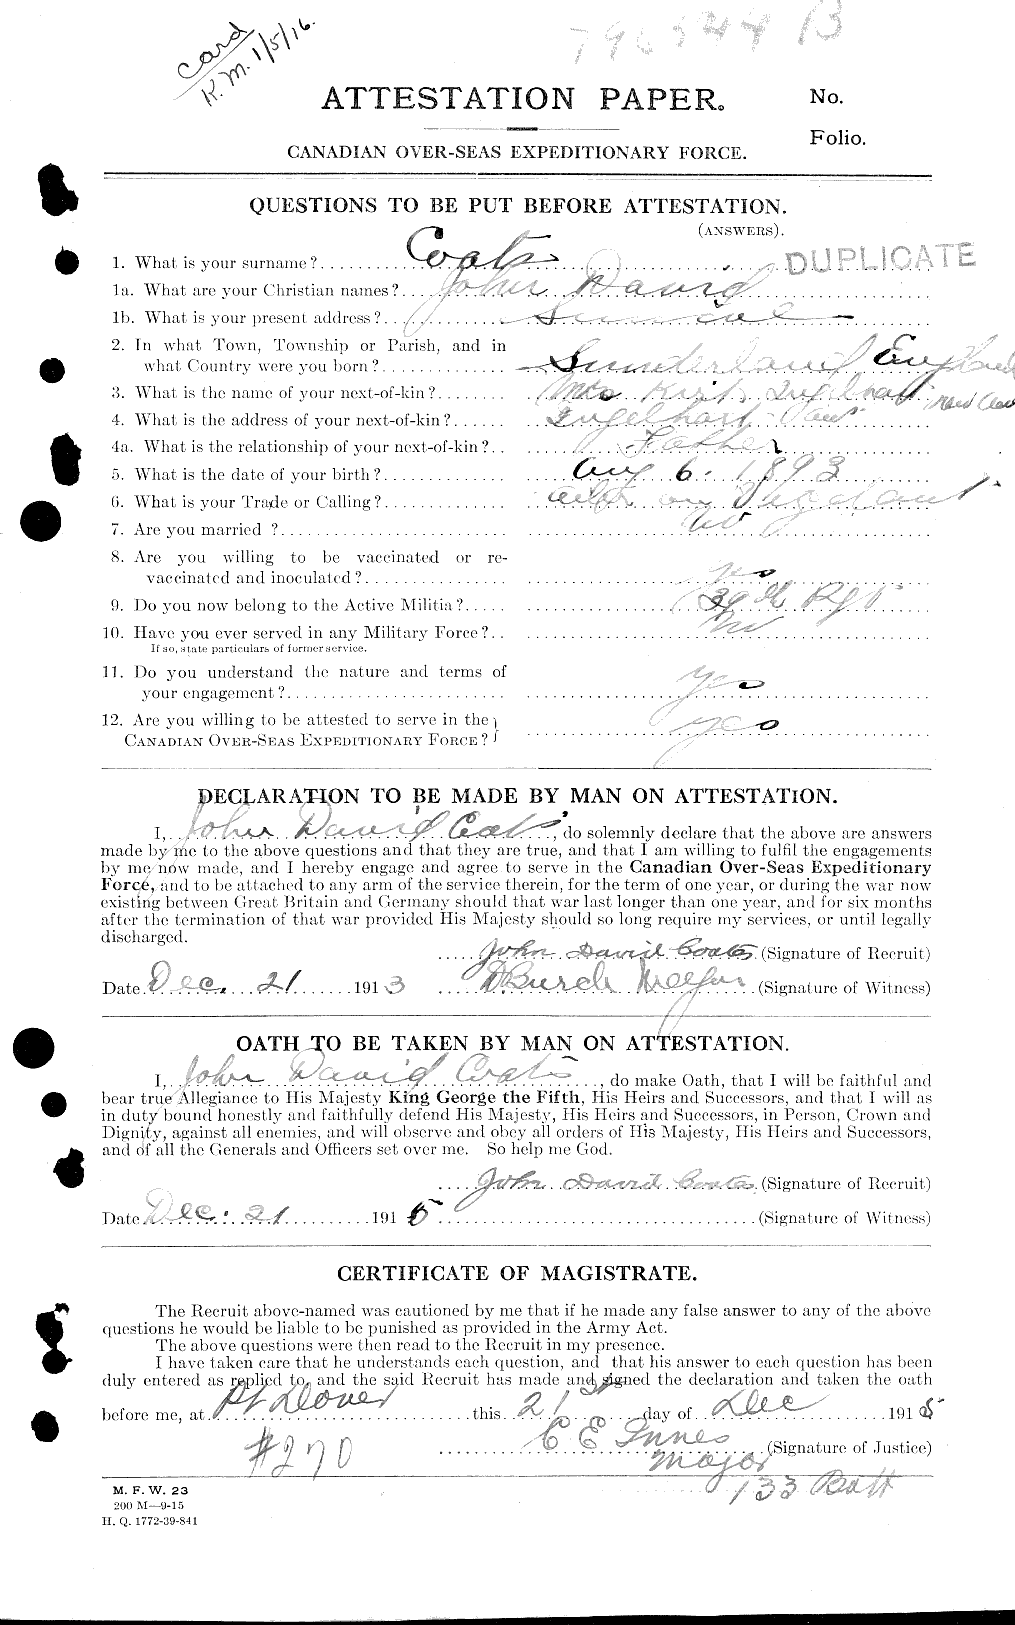 card
K.M. 1/5/16.
796344 B
ATTESTATION PAPER.
No.
Folio.
CANADIAN OVER-SEAS EXPEDITIONARY FORCE.
QUESTIONS TO BE PUT BEFORE ATTESTATION.
(ANSWERS).
DUPLICATE
1. What is your surname? Coats
1a. What are your Christian names? John David
1b. What is your present address? Simcoe
2. In what Town, Township or Parish, and in
what Country were you born? Sunderland England
3. What is the name of your next-of-kin? Mrs
4. What is the address of your next-of-kin?
4a. What is the relationship of your next-of-kin? Father
5. What is the date of your birth? Aug 6. 1893
6. What is your Trade or Calling?
7. Are you married ? No
8. Are you willing to be vaccinated or re-
vaccinated and inoculated? Yes
9. Do you now belong to the Active Militia? 39th Regt
10. Have you ever served in any Military Force? No
If so, state particulars of former service.
11. Do you understand the nature and terms of
your engagement? Yes
12. Are you willing to be attested to serve in the
CANADIAN OVER-SEAS EXPEDITIONARY FORCE? Yes
DECLARATION TO BE MADE BY MAN ON ATTESTATION.
I, John David Coats, do solemnly declare that the above are answers
made by me to the above questions and that they are true, and that I am willing to fulfil the engagements
by me now made, and I hereby engage and agree to serve in the Canadian Over-Seas Expeditionary
Force, and to be attached to any arm of the service therein, for the term of one year, or during the war now
existing between Great Britain and Germany should that war last longer than one year, and for six months
after the termination of that war provided His Majesty should so long require my services, or until legally
discharged.
John David Coats (Signature of Recruit)
Date Dec. 21 1913 (Signature of Witness)
OATH TO BE TAKEN BY MAN ON ATTESTATION.
I, John David Coats, do make Oath, that I will be faithful and
bear true Allegiance to His Majesty King George the Fifth, His Heirs and Successors, and that I will as
in duty bound honestly and faithfully defend His Majesty, His Heirs and Successors, in Person, Crown and
Dignity, against all enemies, and will observe and obey all orders of His Majesty, His Heirs and Successors,
and of all the Generals and Officers set over me. So help me God.
John David Coats (Signature of Recruit)
Date Dec. 21 1915 (Signature of Witness)
CERTIFICATE OF MAGISTRATE.
The Recruit above-named was cautioned by me that if he made any false answer to any of the above
questions he would be liable to be punished as provided in the Army Act.
The above questions were then read to the Recruit in my presence.
I have taken care that he understands each question, and that his answer to each question has been
duly entered as replied to, and the said Recruit has made and signed the declaration and taken the oath
before me, at Pt Dover this 21st day of Dec 1915
#270 C E Innes (Signature of Justice)
Major
133 Batt
M. F. W. 23
200 M—9-15
H. Q. 1772-39-841